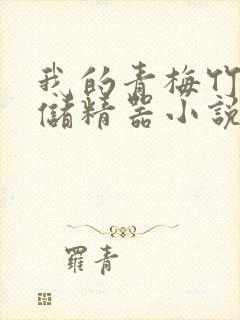 我的青梅竹
儲精器小說
羅青